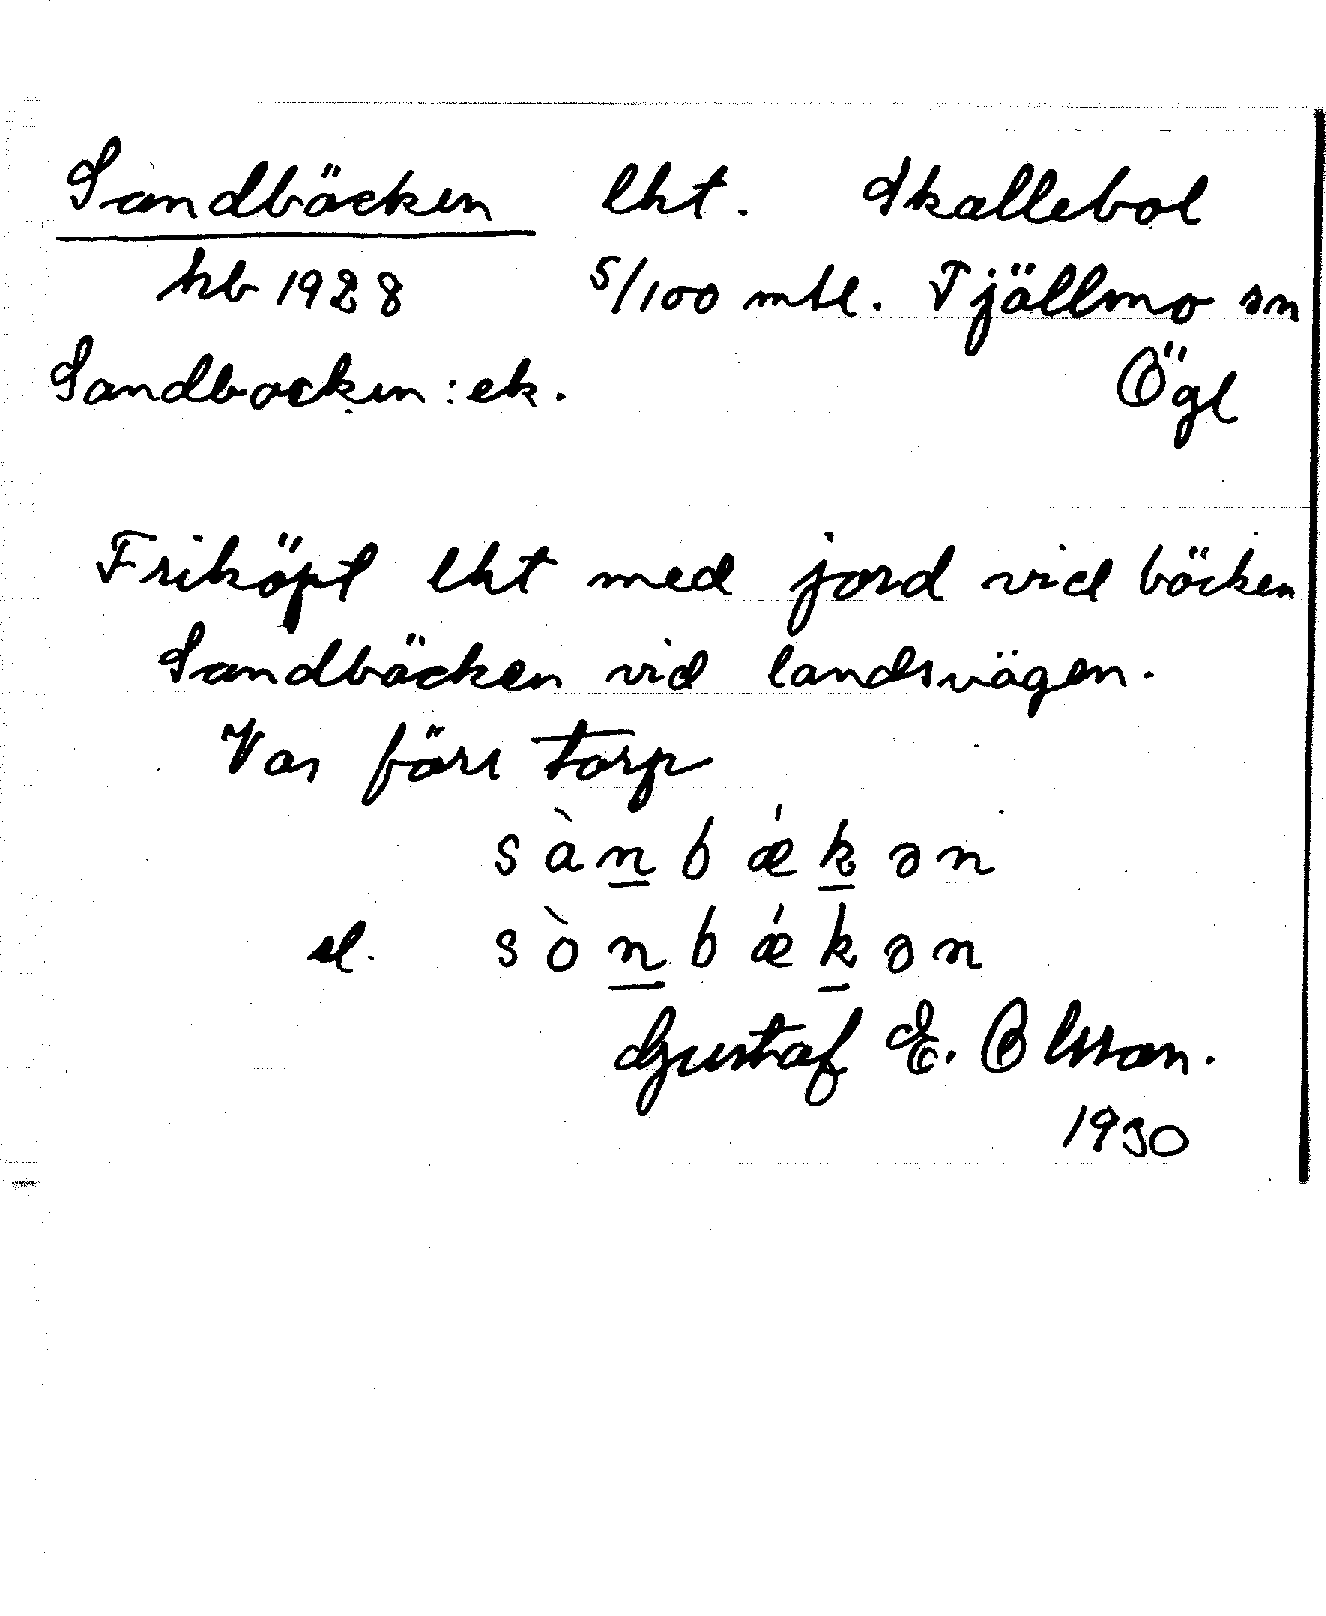 Sandbäcken lht. Skallebol
hb 1928 5/100 mtl. Tjällmo sn
Sandbocken: ek. Ögl
Friköpt lht med jord vid bäcken
Sandbäcken vid landsvägen.
Var förr torp
sàn̲bǽk̲ən
el. sòn̲bǽk̲ən
Gustaf E. Olsson.
1930